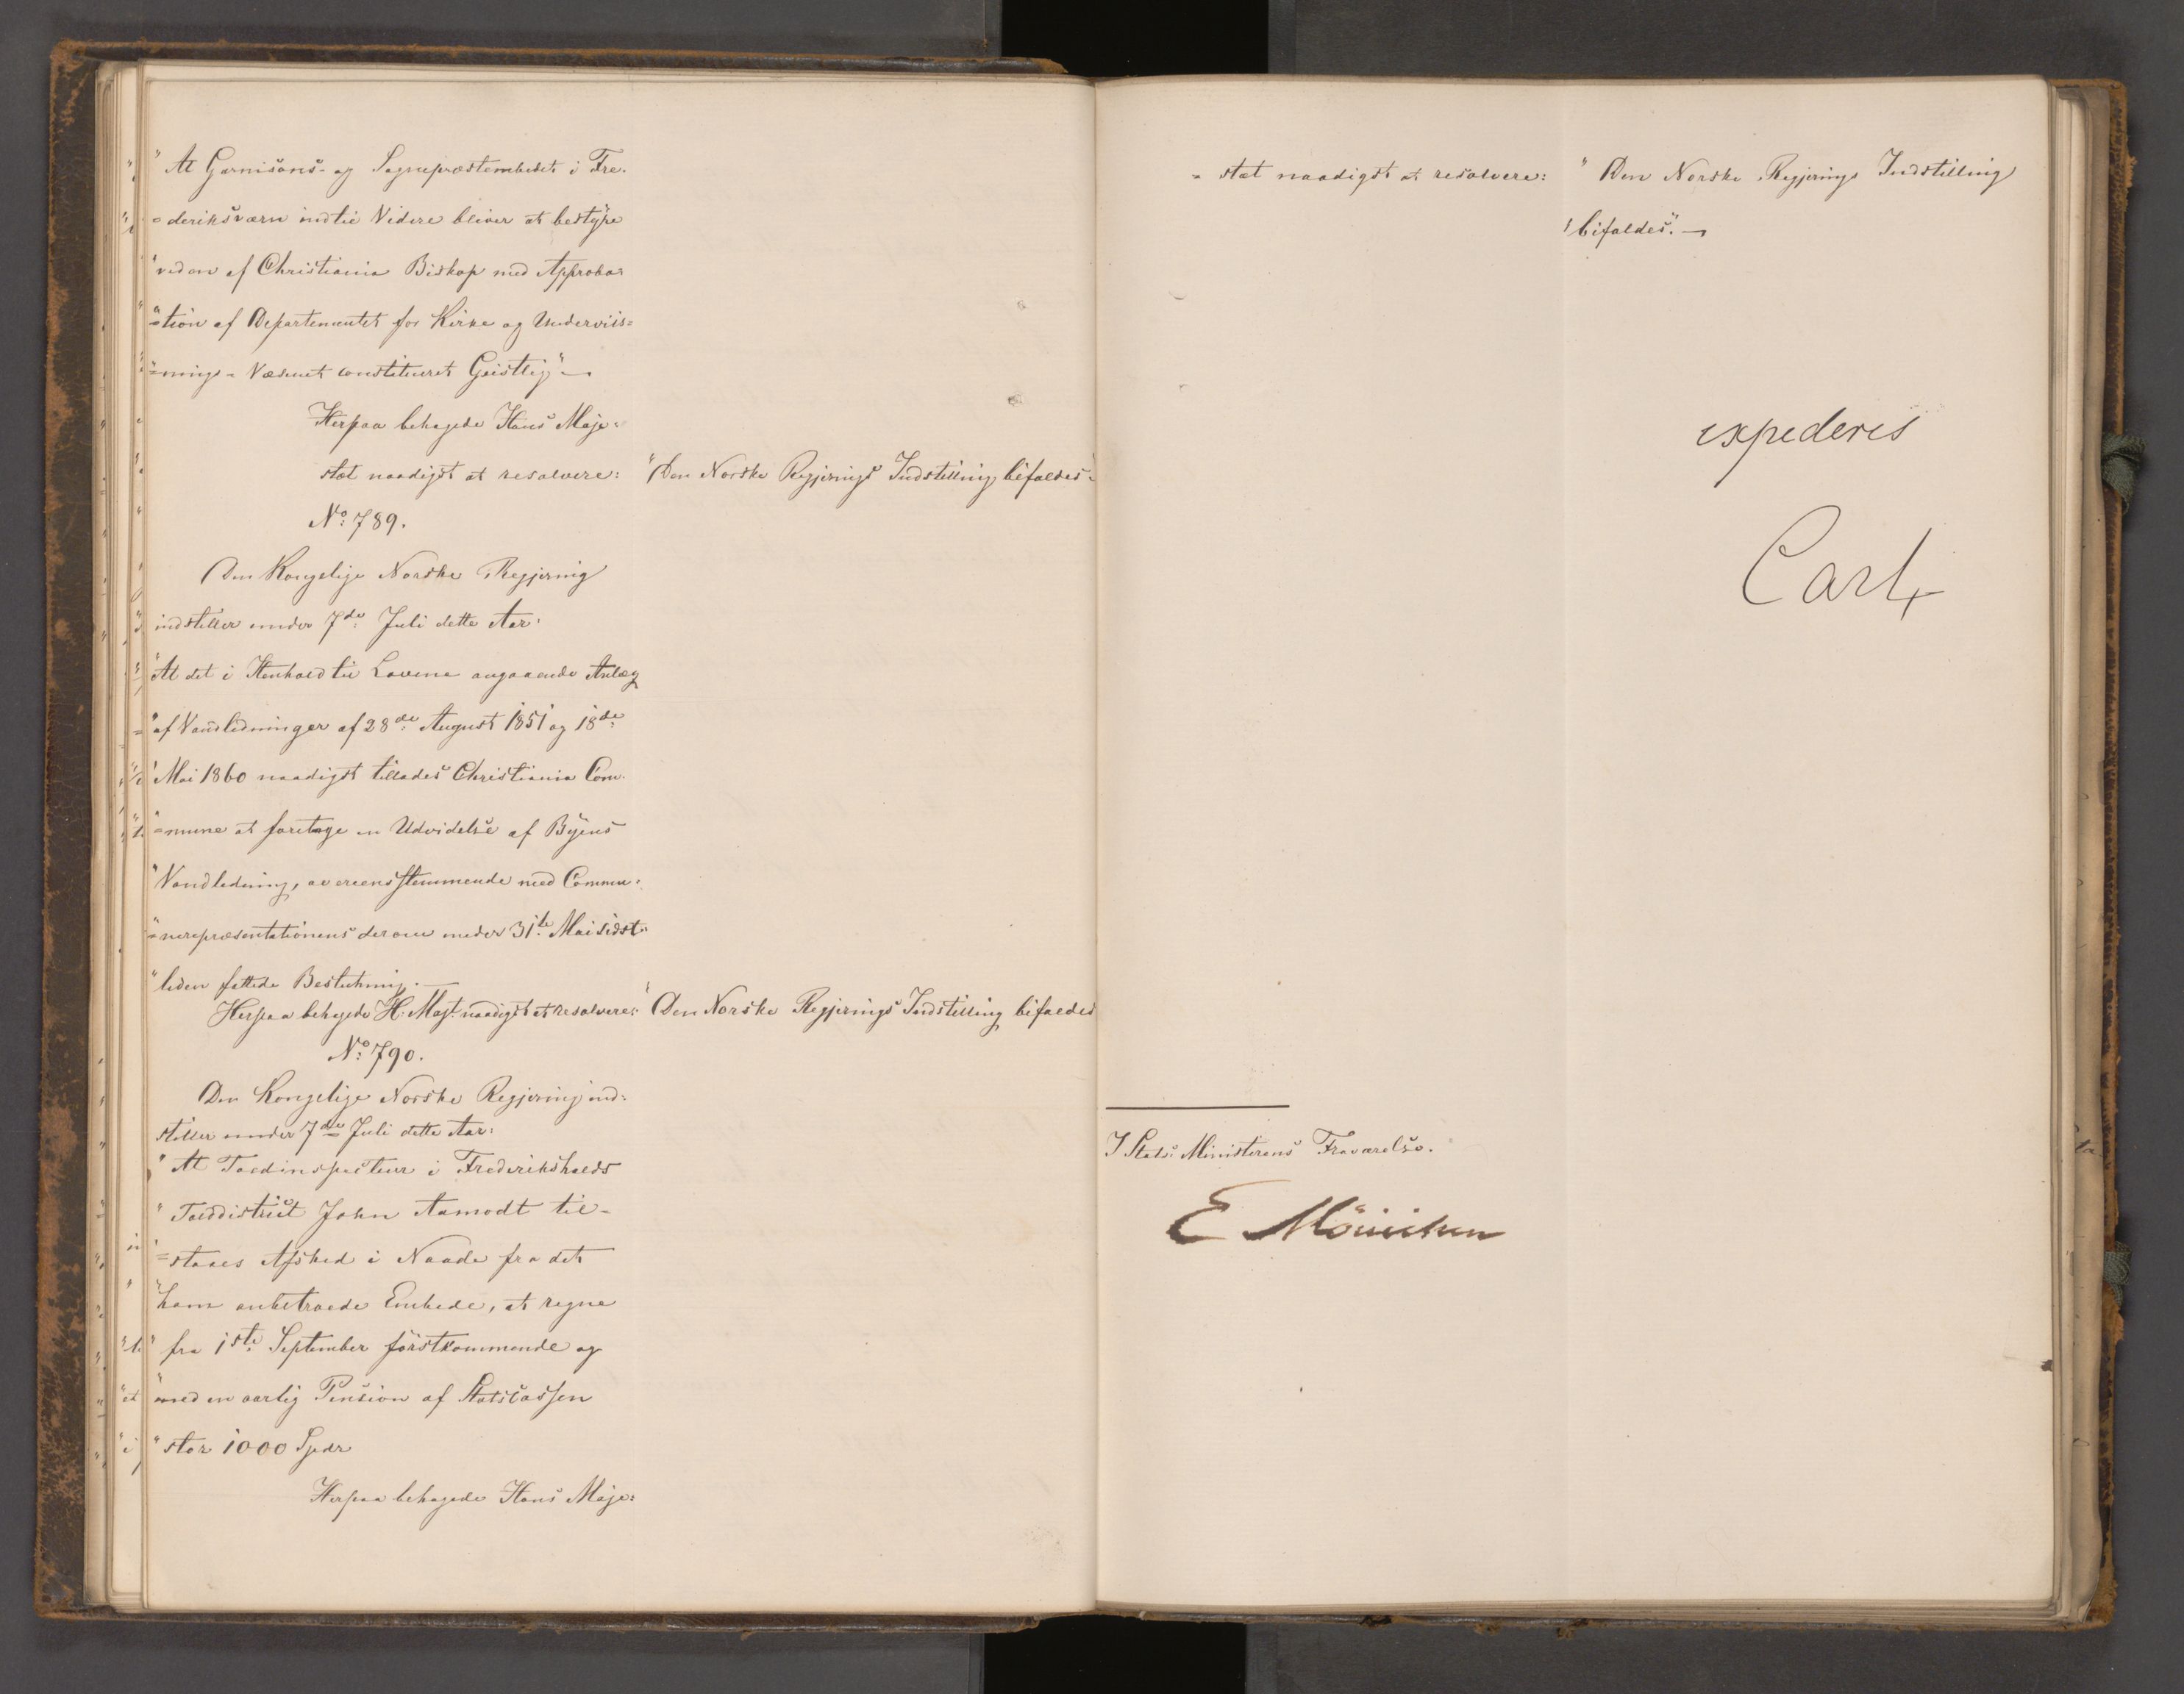 "At Garnisons- og Sognepræstembedet i Fre-
"=deriksværn indtil Videre bliver at bestyre
"ved en af Christiania Biskop med Approba=
"=tion af Departementet for Kirke og Underviis=
"=nings-Væsenet constitueret Geistlig"—
Herpaa behagede Hans Maje=
stæt naadigst at resolvere: "Den Norske Regjerings Indstilling bifaldes."
No: 789.
Den Kongelige Norske Regjering
indstiller under 7de Juli dette Aar:
"At det i Henhold til Lovene angaaende Anlæg
"af Vandledninger af 28de August 1851 og 18de
"Mai 1860 naadigst tillades Christiania Com-
"=mune at foretage en Udvidelse af Byens
"Vandledning, overeensstemmende med Commu=
"=nerepræsentationens derom under 31te Mai sidst=
"leden fattede Beslutning.—
Herpaa behagede H. Majt. naadigst at resolvere: "Den Norske Regjerings Indstilling bifaldes
No: 790.
Den Kongelige Norske Regjering ind=
stiller under 7de Juli dette Aar:
"At Toldinspecteur i Frederikshalds
"Tolddistrict John Aamodt til-
"=staaes Afsked i Naade fra det
"ham anbetroede Embede, at regne
"fra 1ste September förstkommende og
"med en aarlig Pension af Statscassen
"stor 1000 Spdr
Herpaa behagede Hans Maje=
=stæt naadigst at resolvere: "Den Norske Regjerings Indstilling
"bifaldes".—
expederes
Carl
I Stats-Ministerens Fraværelse.
E Möinichen